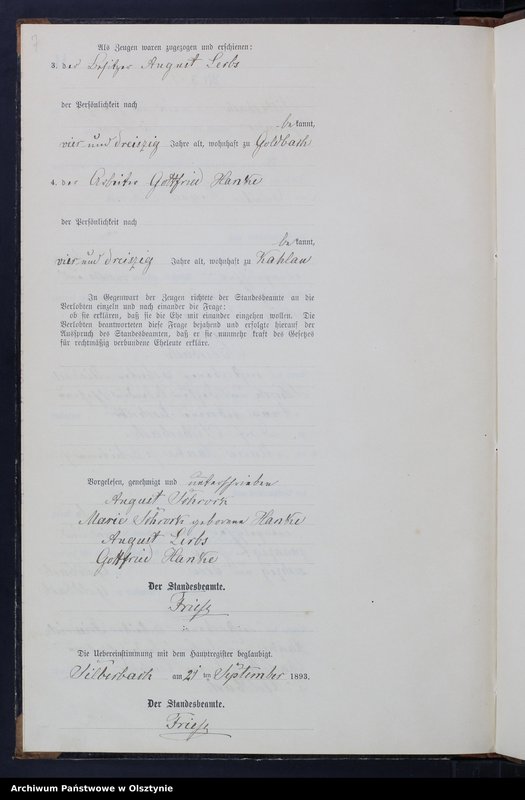 Als Zeugen waren zugezogen und erschienen:
3. der Besitzer August Lerbs
der Persönlichkeit nach
be kannt,
vier und dreiszig Jahre alt, wohnhaft zu Goldbach
4. der Arbeiter Gottfried Hanke
der Persönlichkeit nach
be kannt,
vier und dreiszig Jahre alt, wohnhaft zu Kahlau
In Gegenwart der Zeugen richtete der Standesbeamte an die
Verlobten einzeln und nach einander die Frage:
ob sie erklären, daß sie die Ehe mit einander eingehen wollen. Die
Verlobten beantworteten diese Frage bejahend und erfolgte hierauf der
Ausspruch des Standesbeamten, daß er sie nunmehr kraft des Gesetzes
für rechtmäßig verbundene Eheleute erkläre.
Vorgelesen, genehmigt und unterschrieben
August Schrock
Marie Schrock geborene Hanke
August Lerbs
Gottfried Hanke
Der Standesbeamte.
Friese
Die Uebereinstimmung mit dem Hauptregister beglaubigt.
Silberbach am 21 ten September 1893.
Der Standesbeamte.
Friese
Archiwum Państwowe w Olsztynie